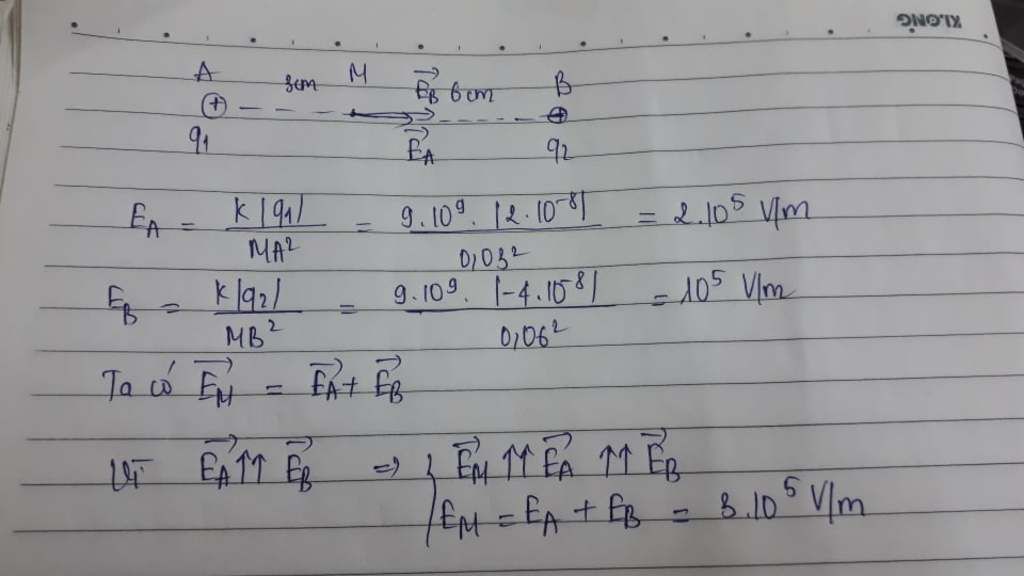 KLONG
A 3cm M E⃗_B 6cm B
⊕ ⊕
q₁ E⃗_A q₂
E_A = K|q₁| / MA² = 9.10⁹. |2.10⁻⁸| / 0,03² = 2.10⁵ V/m
E_B = K|q₂| / MB² = 9.10⁹. |-4.10⁻⁸| / 0,06² = 10⁵ V/m
Ta có E⃗_M = E⃗_A + E⃗_B
Vì E⃗_A ↑↑ E⃗_B ⇒ { E⃗_M ↑↑ E⃗_A ↑↑ E⃗_B
E_M = E_A + E_B = 3.10⁵ V/m